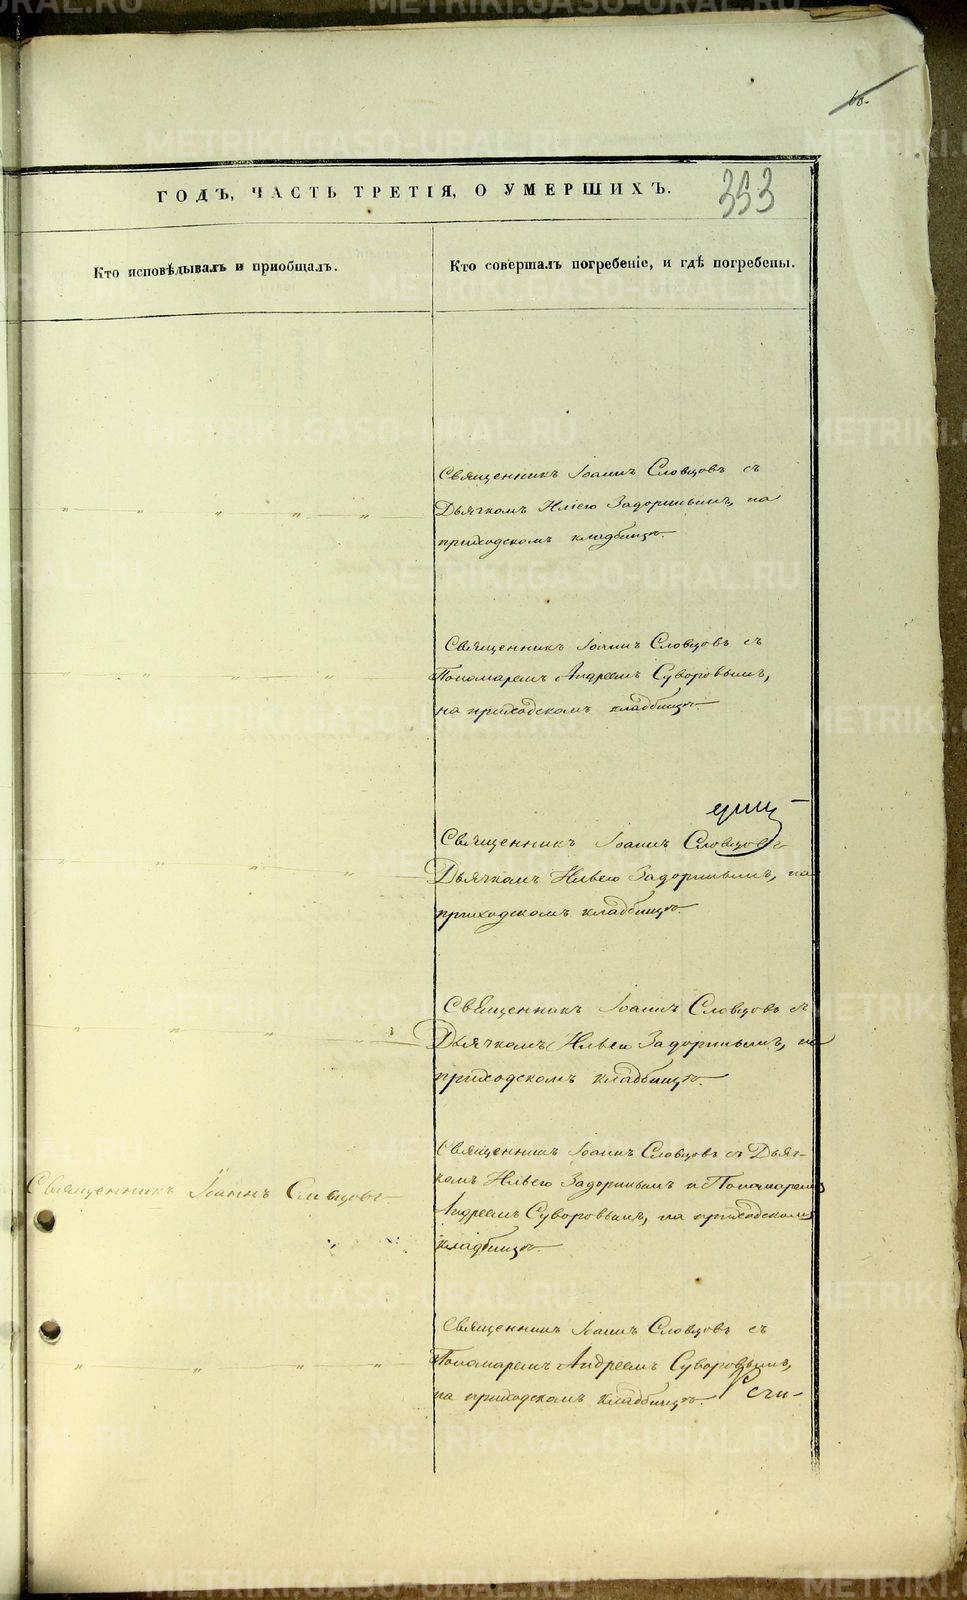 60.
ГОДЪ, ЧАСТЬ ТРЕТІЯ, О УМЕРШИХЪ.
353
Кто исповѣдывалъ и пріобщалъ.
Кто совершалъ погребеніе, и гдѣ погребены.
Священникъ Іоаннъ Словцовъ съ
Дьячкомъ Иліею Задоринымъ, на
приходскомъ кладбищѣ.
Священникъ Іоаннъ Словцовъ съ
Пономаремъ Андреемъ Суворовымъ,
на приходскомъ кладбищѣ.
Священникъ Іоаннъ Словцовъ съ
Дьячкомъ Ильею Задоринымъ, на
приходскомъ кладбищѣ.
Священникъ Іоаннъ Словцовъ съ
Дьячкомъ Ильею Задоринымъ, на
приходскомъ кладбищѣ.
Священникъ Іоаннъ Словцовъ
Священникъ Іоаннъ Словцовъ съ Дьяч-
комъ Ильею Задоринымъ и Пономаремъ
Андреемъ Суворовымъ, на приходскомъ
кладбищѣ.
Священникъ Іоаннъ Словцовъ съ
Пономаремъ Андреемъ Суворовымъ,
на приходскомъ кладбищѣ.
METRIKI.GASO-URAL.RU